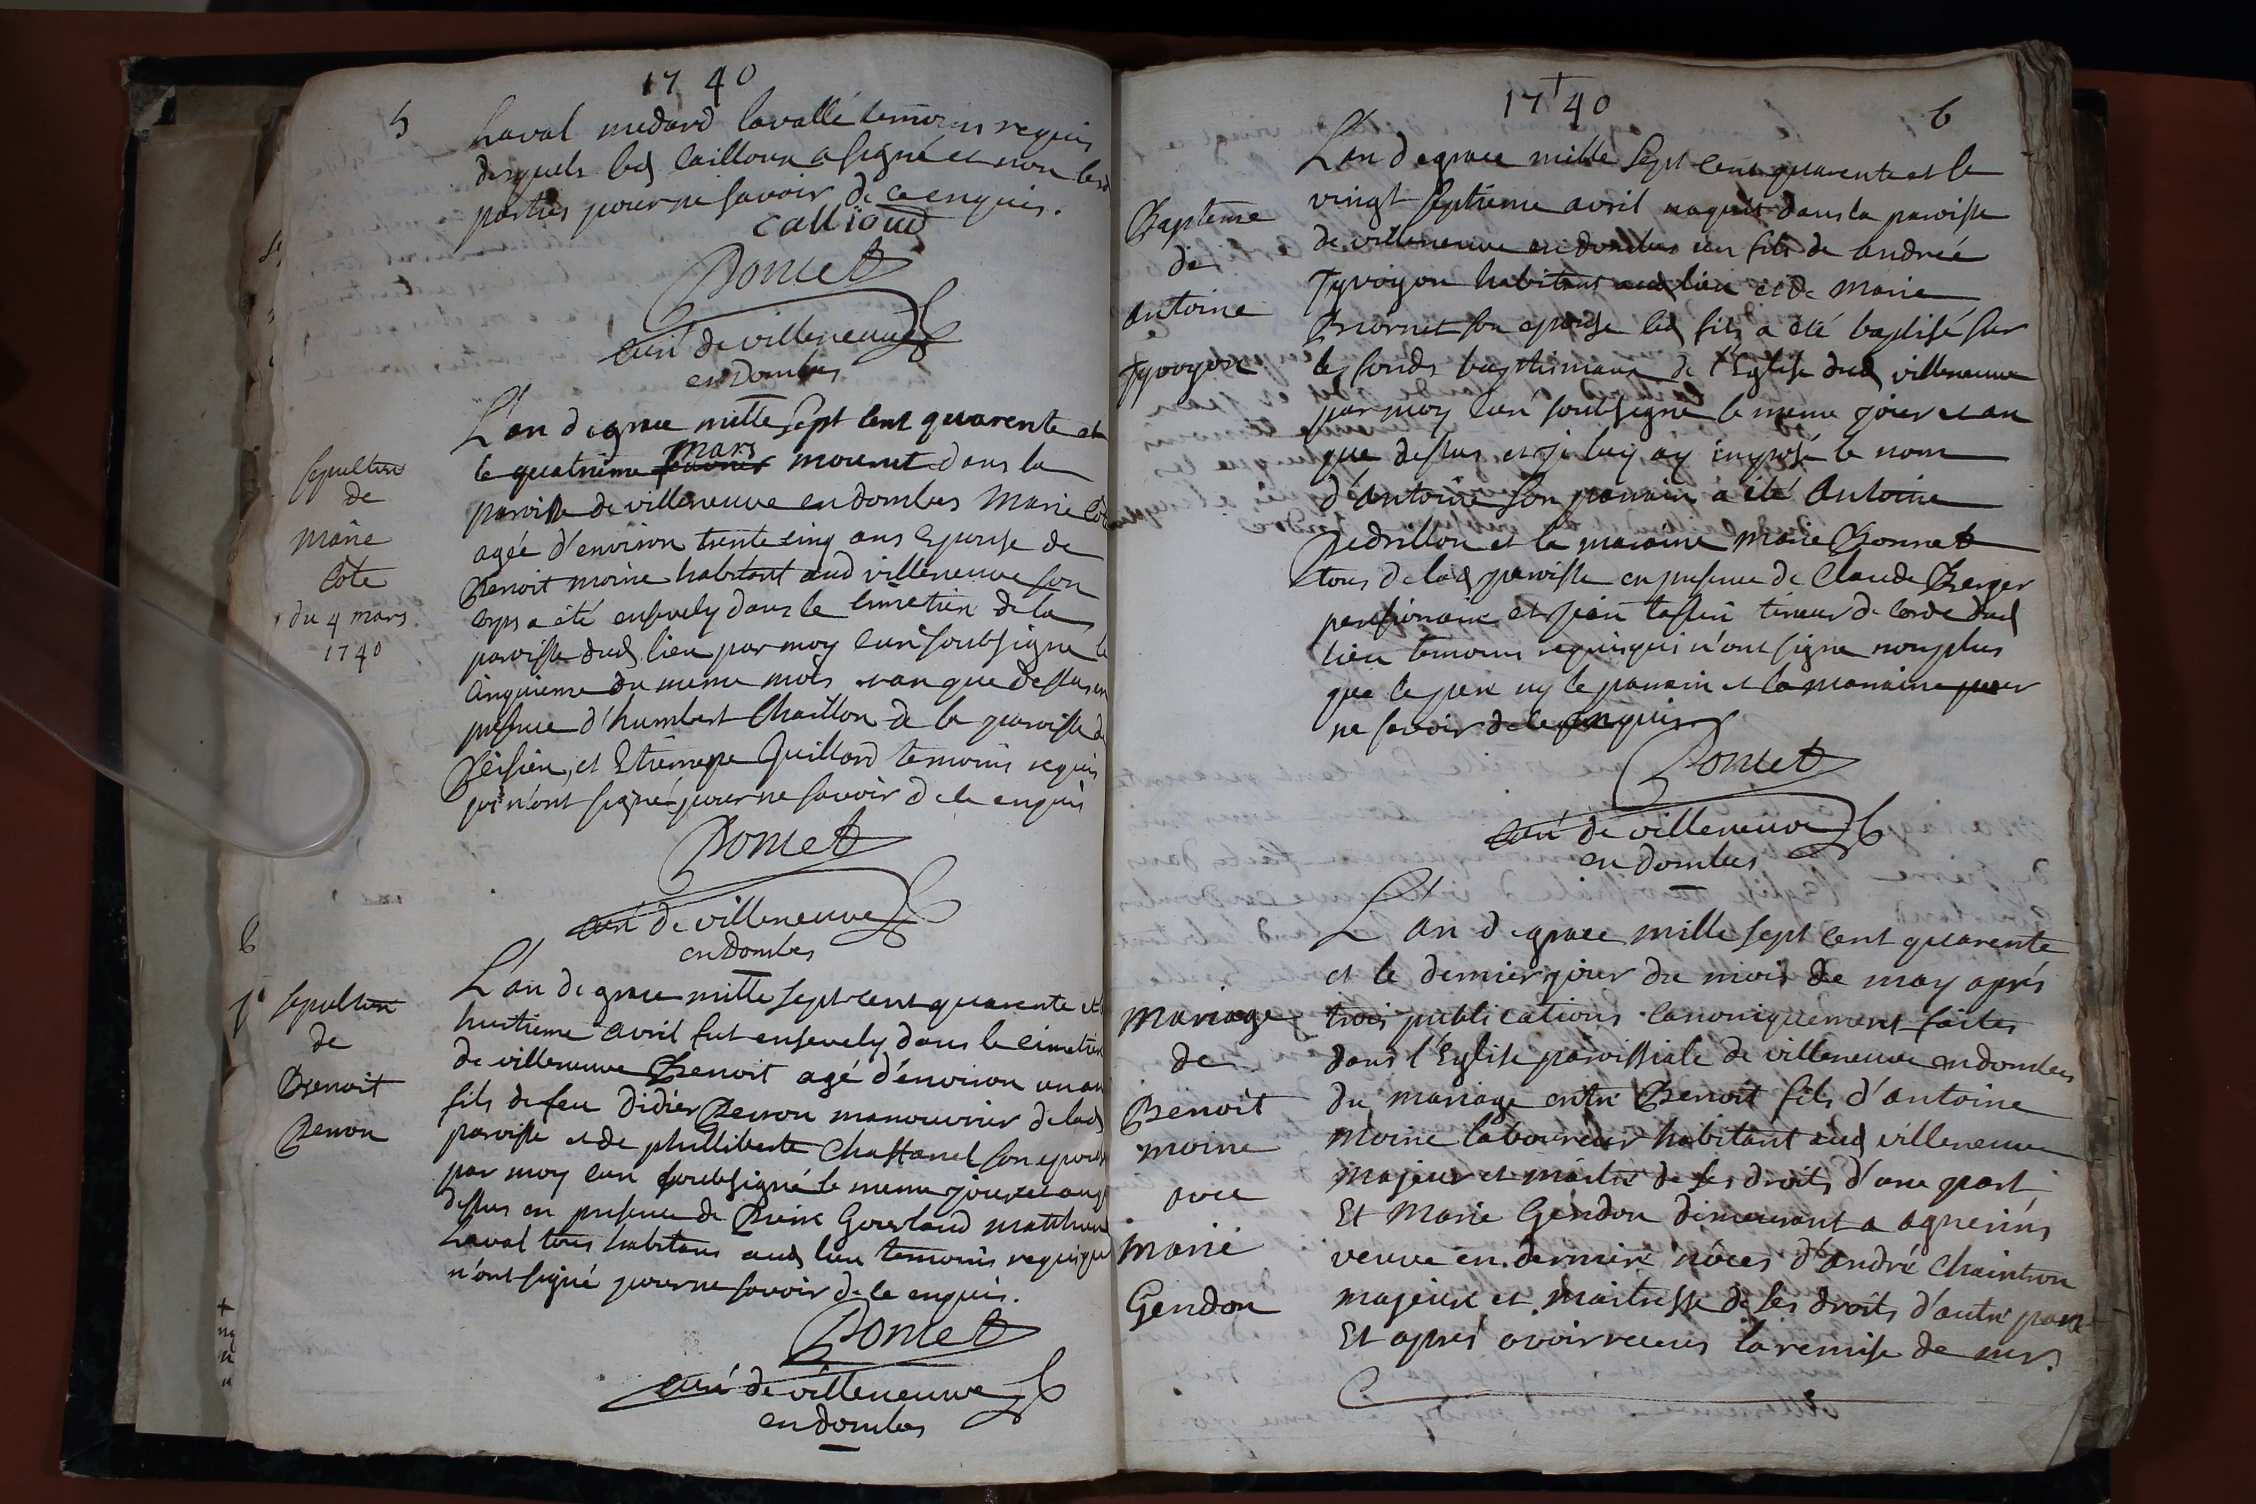 1740
5
Laval medard lavallé temoins requis
desquels led Cailloux a signé et non les
parties pour ne savoir de ce enquis.
callioud
Poncet
curé de villeneuve
en Dombes
L'an de grace mille Sept cent quarente et
le quatrieme mars mourut dans la
paroisse de villeneuve en dombes Marie Cote
agée d'environ trente cinq ans Epouse de
Benoit moine habitant aud villeneuve son
corps a été ensevely dans le Cimetiere de la
paroisse dud lieu par moy curé soubsigné le
Cinquieme du meme mois et an que dessus en
presence d'humbert Chaillon de la paroisse de
et Etienne Guillard temoins requis
qui n'ont signé pour ne savoir de ce enquis
Poncet
curé de villeneuve
en Dombes
sepulture
de
marie
Cote
du 4 mars
1740
6
L'an de grace mille sept cent quarente et
huitieme avril fut ensevely dans le cimetiere
de villeneuve Benoit agé d'environ un an
fils de feu Didier Perron manouvrier de lad
paroisse et de philliberte Chastanel son epouse
par moy curé soubsigné le meme jour et an q
dessus en presence de Pierre Gourland Matthieu
Laval tous habitans aud lieu temoins requis qui
n'ont signé pour ne savoir de ce enquis.
Poncet
curé de villeneuve
en dombes
sepulture
de
Benoit
Perron
1740
6
L'an de grace mille Sept cent quarente et le
vingt septieme avril naquit dans la paroisse
de villeneuve en dombes un fils de andreé
Tyvoyon habitant aud lieu et de Marie
Biornet son epouse led fils a été baptisé sur
les fonds baptismaux de l'Eglise dud villeneuve
par moy Curé soubsigné le meme jour et an
que dessus et je luy ay imposé le nom
d'Antoine son parrain a été Antoine
Pedrillon et la maraine Marie Bonnet
tous de lad paroisse en presence de Claude Berger
pensionaire et jean tireur de corde dud
lieu temoins requis qui n'ont signé nonplus
que le pere ny le parrain et la marraine pour
ne savoir de ce enquis
Poncet
curé de villeneuve
en dombes
Baptême
de
Antoine
Tyvoyon
L'an de grace mille sept cent quarente
et le dernier jour du mois de may aprés
trois publications canoniquement faites
dans l'Eglise paroissiale de villeneuve en dombes
du mariage entre Benoit fils d'antoine
Moine laboureur habitant aud villeneuve
Majeur et maitre de ses droits d'une part
Et Marie Gendon demeurant a agnerins
veuve en derniere nôces d'André Chaintron
majeure et maitresse de ses droits d'autre part
Et aprés avoir receus la remise de mrs
Mariage
de
Benoit
moine
avec
Marie
Gendon